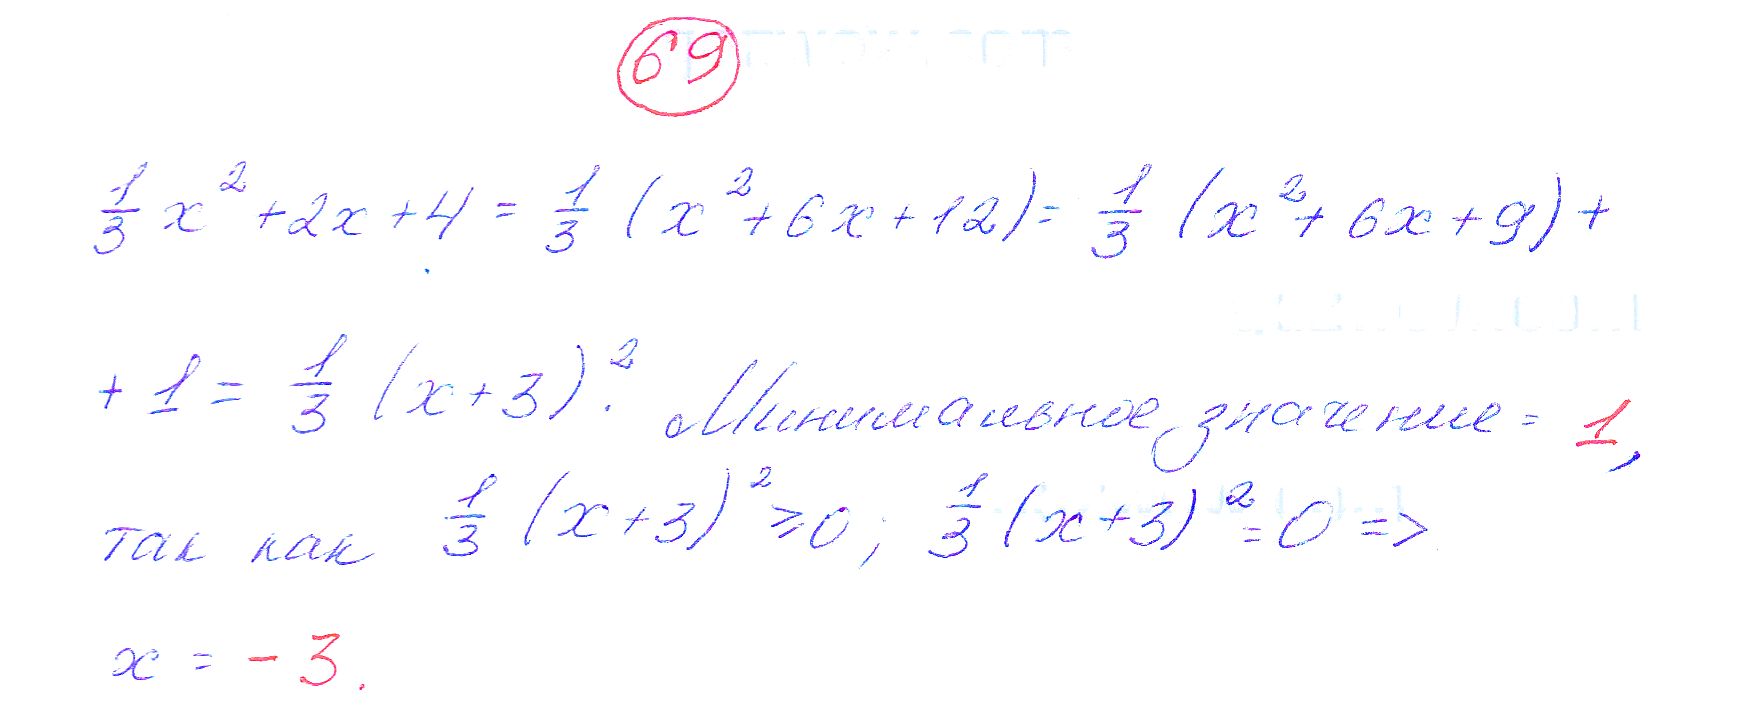 69
1/3 x² + 2x + 4 = 1/3 (x² + 6x + 12) = 1/3 (x² + 6x + 9) +
+ 1 = 1/3 (x + 3)². Минимальное значение = 1,
так как 1/3 (x + 3)² ⩾ 0; 1/3 (x + 3)² = 0 =>
x = - 3.